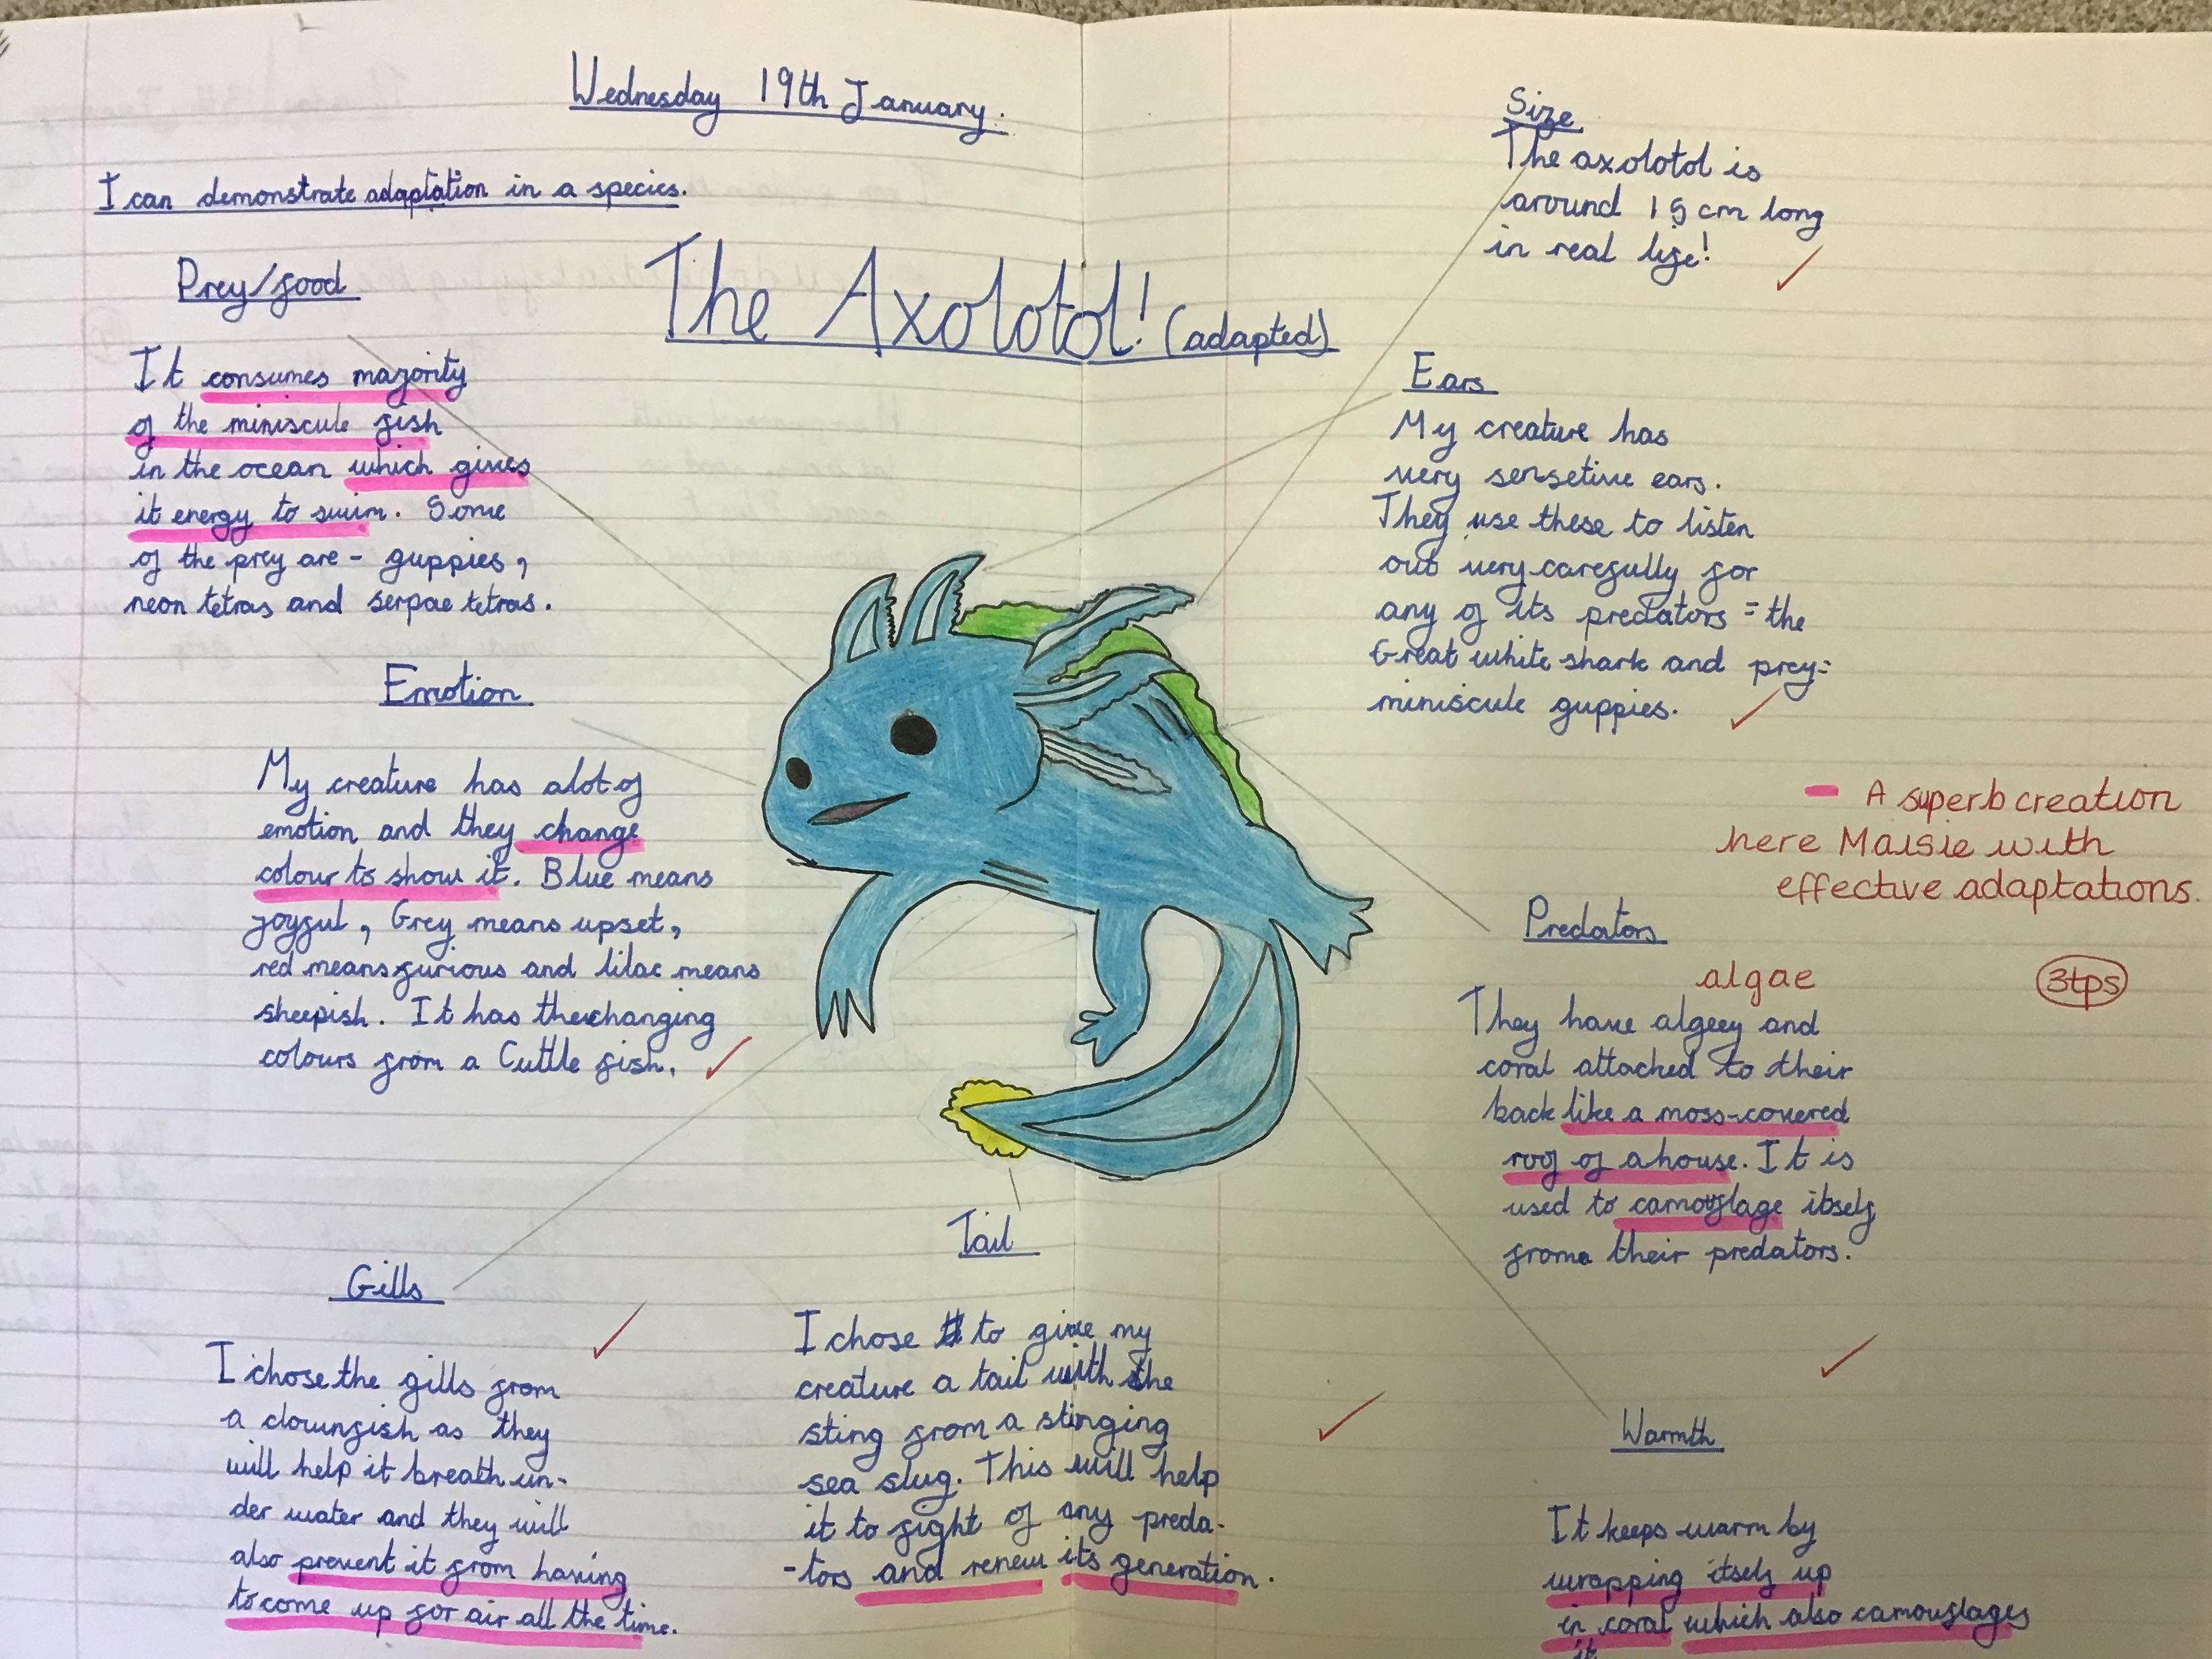 Wednesday 19th January.
I can demonstrate adaptation in a species.
The Axolotol! (adapted)
Prey/food
It consumes majority
of the miniscule fish
in the ocean which gives
it energy to swim. Some
of the prey are - guppies,
neon tetras and serpae tetras.
Emotion
My creature has alot of
emotion and they change
colour to show it. Blue means
joyful, Grey means upset,
red means furious and lilac means
sheepish. It has the changing
colours from a Cuttle fish.
Gills
I chose the gills from
a clownfish as they
will help it breath un-
der water and they will
also prevent it from having
to come up for air all the time.
Tail
I chose to give my
creature a tail with the
sting from a stinging
sea slug. This will help
it to fight of any preda-
-tors and renew its generation.
Size
The axolotol is
around 15 cm long
in real life!
Ears
My creature has
very sensetive ears.
They use these to listen
out very carefully for
any of its predators = the
Great white shark and prey=
miniscule guppies.
- A superb creation
here Maisie with
effective adaptations.
3tps
Predators
algae
They have algeey and
coral attached to their
back like a moss-covered
roof of a house. It is
used to camouflage itself
from their predators.
Warmth
It keeps warm by
wrapping itself up
in coral which also camouflages
it